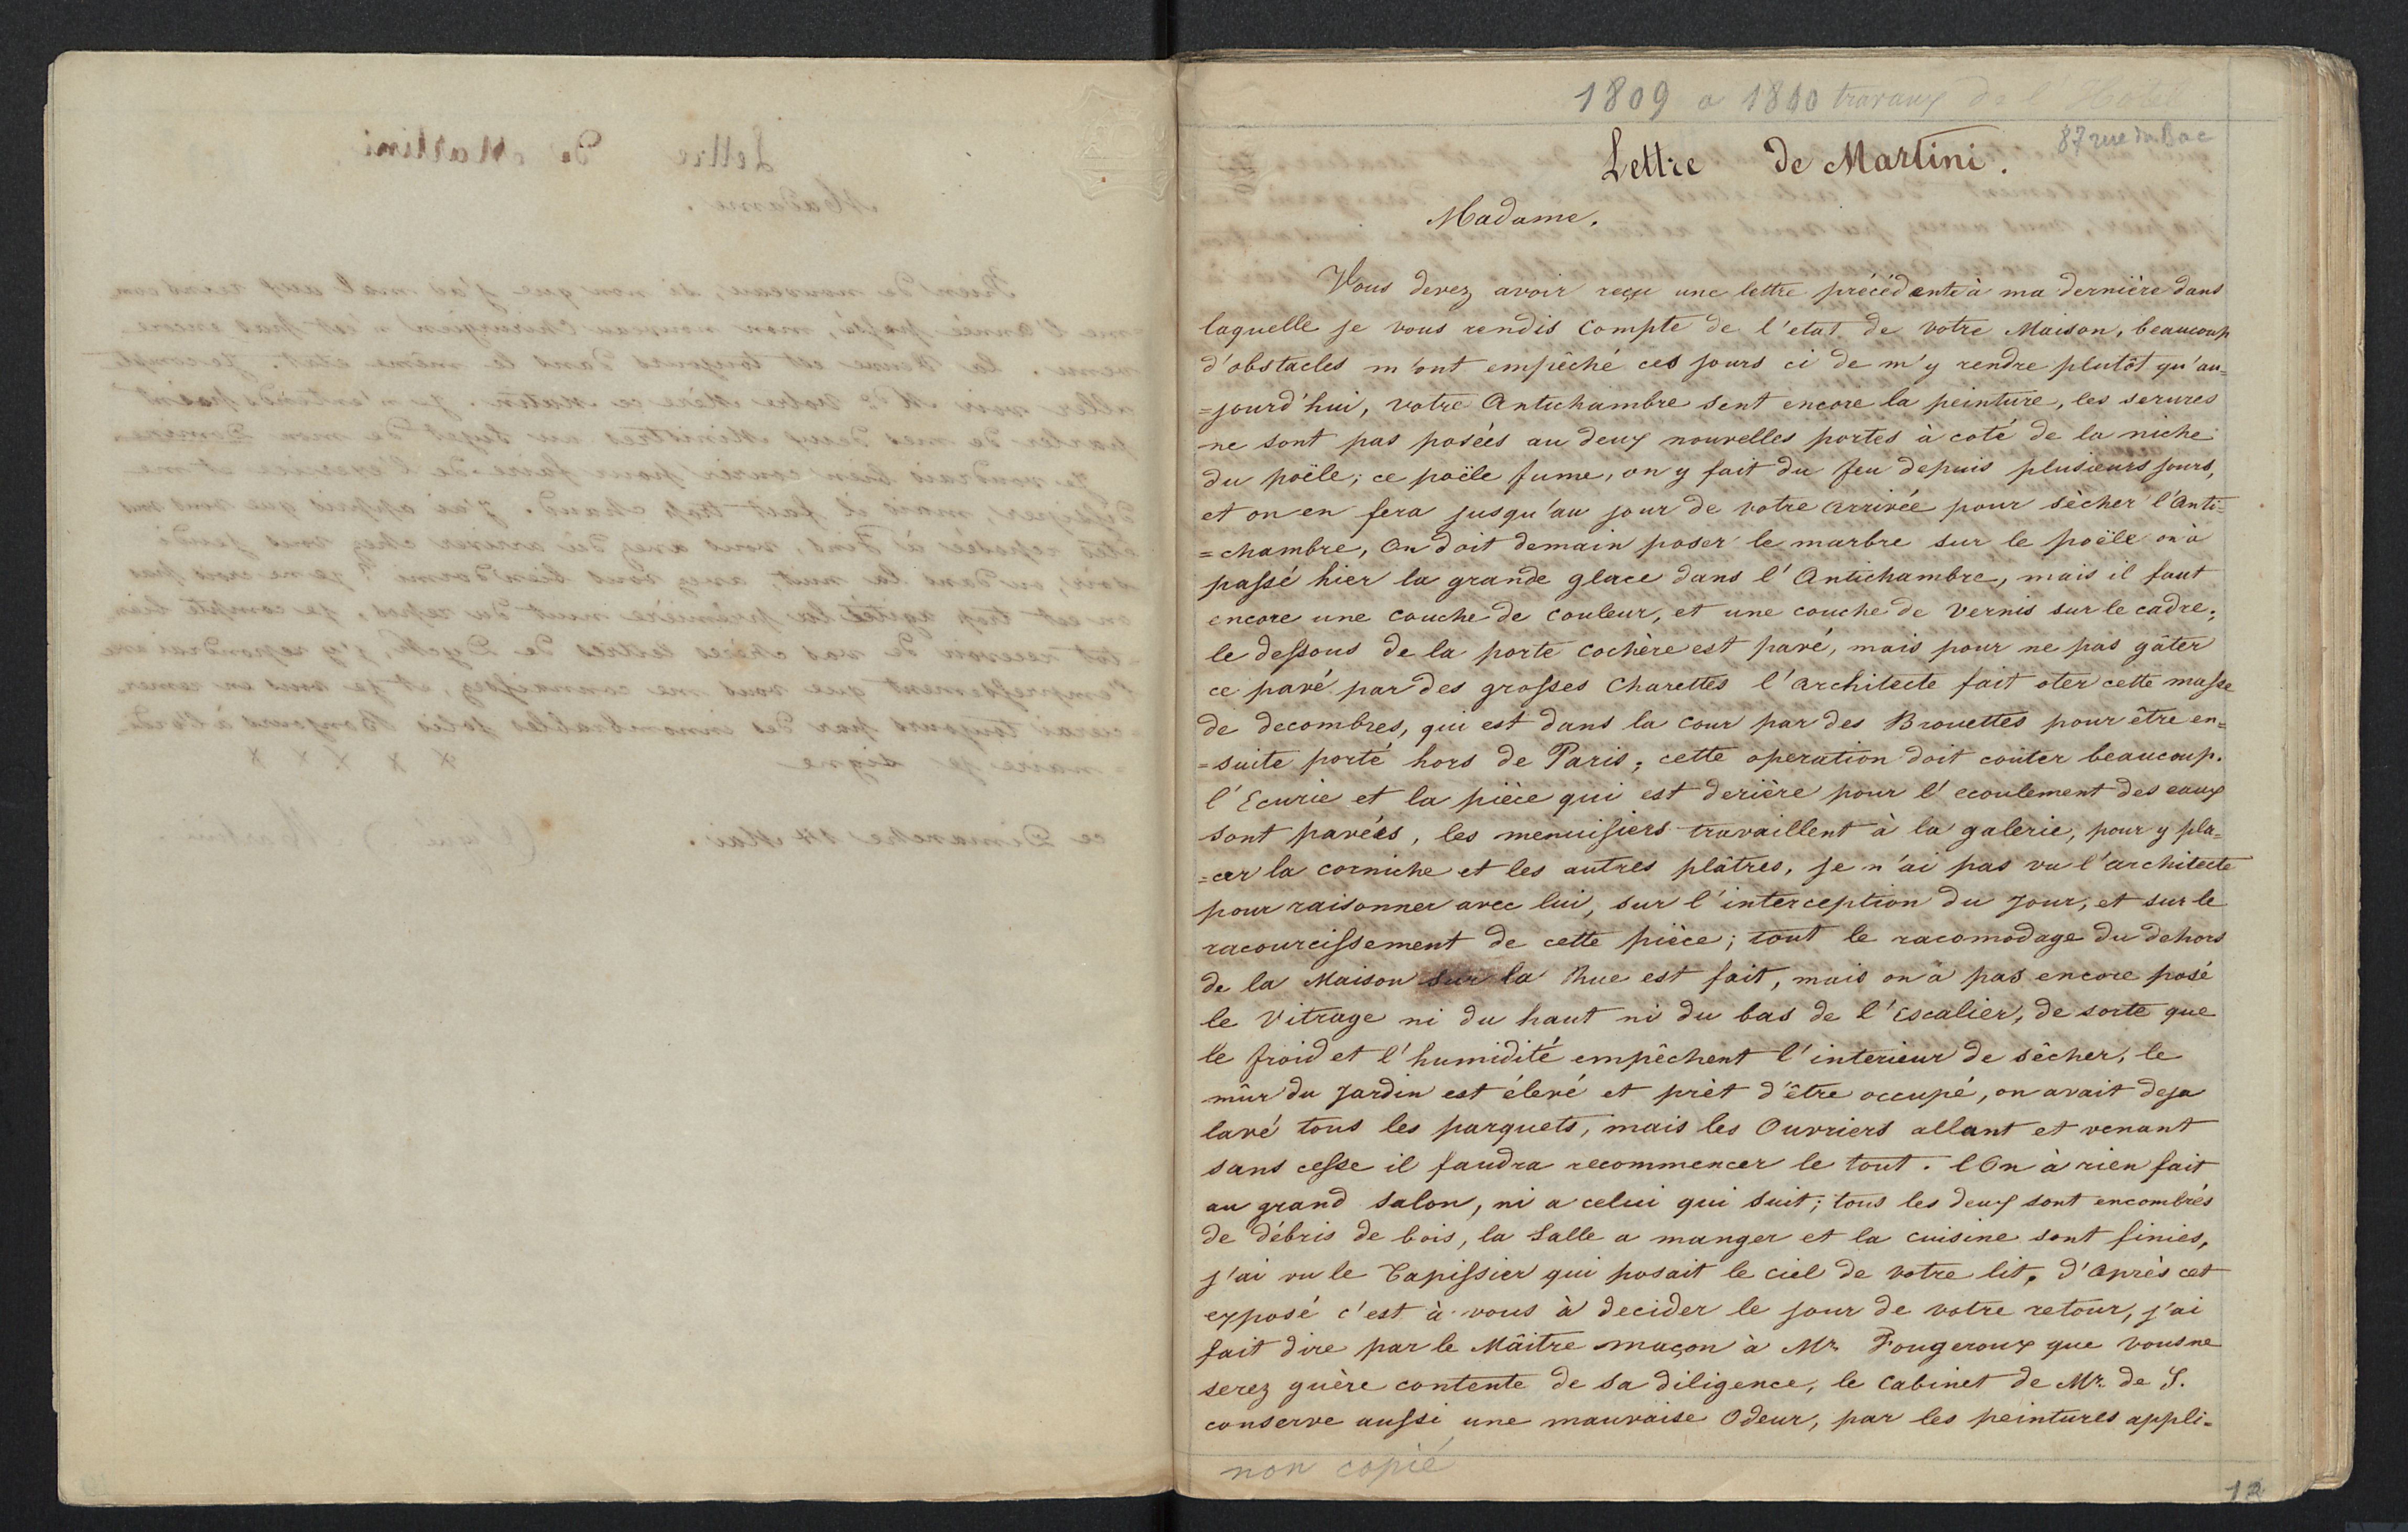 1809 a 1810 travaux de l'Hotel
87 rue du Bac
Lettre de Martini.
Madame.
Vous devez avoir reçu une lettre précédente à ma dernière dans
laquelle je vous rendis compte de l'etat de votre Maison, beaucoup
d'obstacles m'ont empêché ces jours ci de m'y rendre plutôt qu'au=
=jourd'hui, votre Antichambre sent encore la peinture, les serures
ne sont pas posées au deux nouvelles portes à coté de la niche
du poële; ce poële fume, on y fait du feu depuis plusieurs jours,
et on en fera jusqu'au jour de votre arrivée pour sècher l'Anti=
=chambre, On doit demain poser le marbre sur le poële on à
passé hier la grande glace dans l'Antichambre, mais il faut
encore une couche de couleur, et une couche de vernis sur le cadre;
le dessous de la porte cochère est pavé, mais pour ne pas gâter
ce pavé par des grosses Charettes l'architecte fait oter cette masse
de decombres, qui est dans la cour par des Brouettes pour être en=
=suite porté hors de Paris; cette operation doit coûter beaucoup.
l'Ecurie et la pièce qui est derière pour l'ecoulement des eaux
sont pavées, les menuisiers travaillent à la galerie, pour y pla=
=cer la corniche et les autres plâtres, je n'ai pas vu l'architecte
pour raisonner avec lui, sur l'interception du jour, et sur le
racourcissement de cette pièce; tout le racomodage du dehors
de la Maison sur la Rue est fait, mais on à pas encore posé
le Vitrage ni du haut ni du bas de l'Escalier, de sorte que
le froid et l'humidité empêchent l'interieur de sêcher, le
mûr du Jardin est élevé et prèt d'être occupé, on avait deja
lavé tous les parquets, mais les Ouvriers allant et venant
sans cesse il faudra recommencer le tout. l'On à rien fait
au grand salon, ni a celui qui suit; tous les deux sont encombrés
de débris de bois, la Salle a manger et la cuisine sont finies,
j'ai vu le Tapissier qui posait le ciel de votre lit, d'après cet
exposé c'est à vous à decider le jour de votre retour, j'ai
fait dire par le Mâitre maçon à Mr. Fougeroux que vous ne
serez guère contente de sa diligence, le Cabinet de Mr. de S.
conserve aussi une mauvaise Odeur, par les peintures appli=
non copié